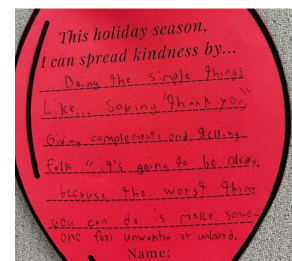 This holiday season,
I can spread kindness by...
Doing the simple things
Like... Saying "thank you"
Giving complements and telling
folk "it's going to be okay.
because the worst thing
you can do is make some-
one feel unwanted or unloved.
Name: